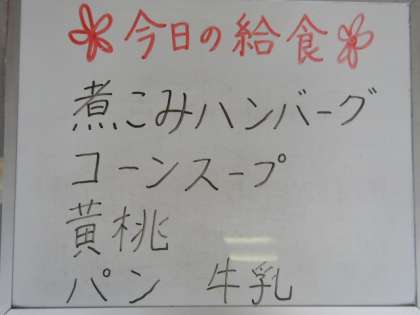 今日の給食
煮こみハンバーグ
コーンスープ
黄桃
パン 牛乳